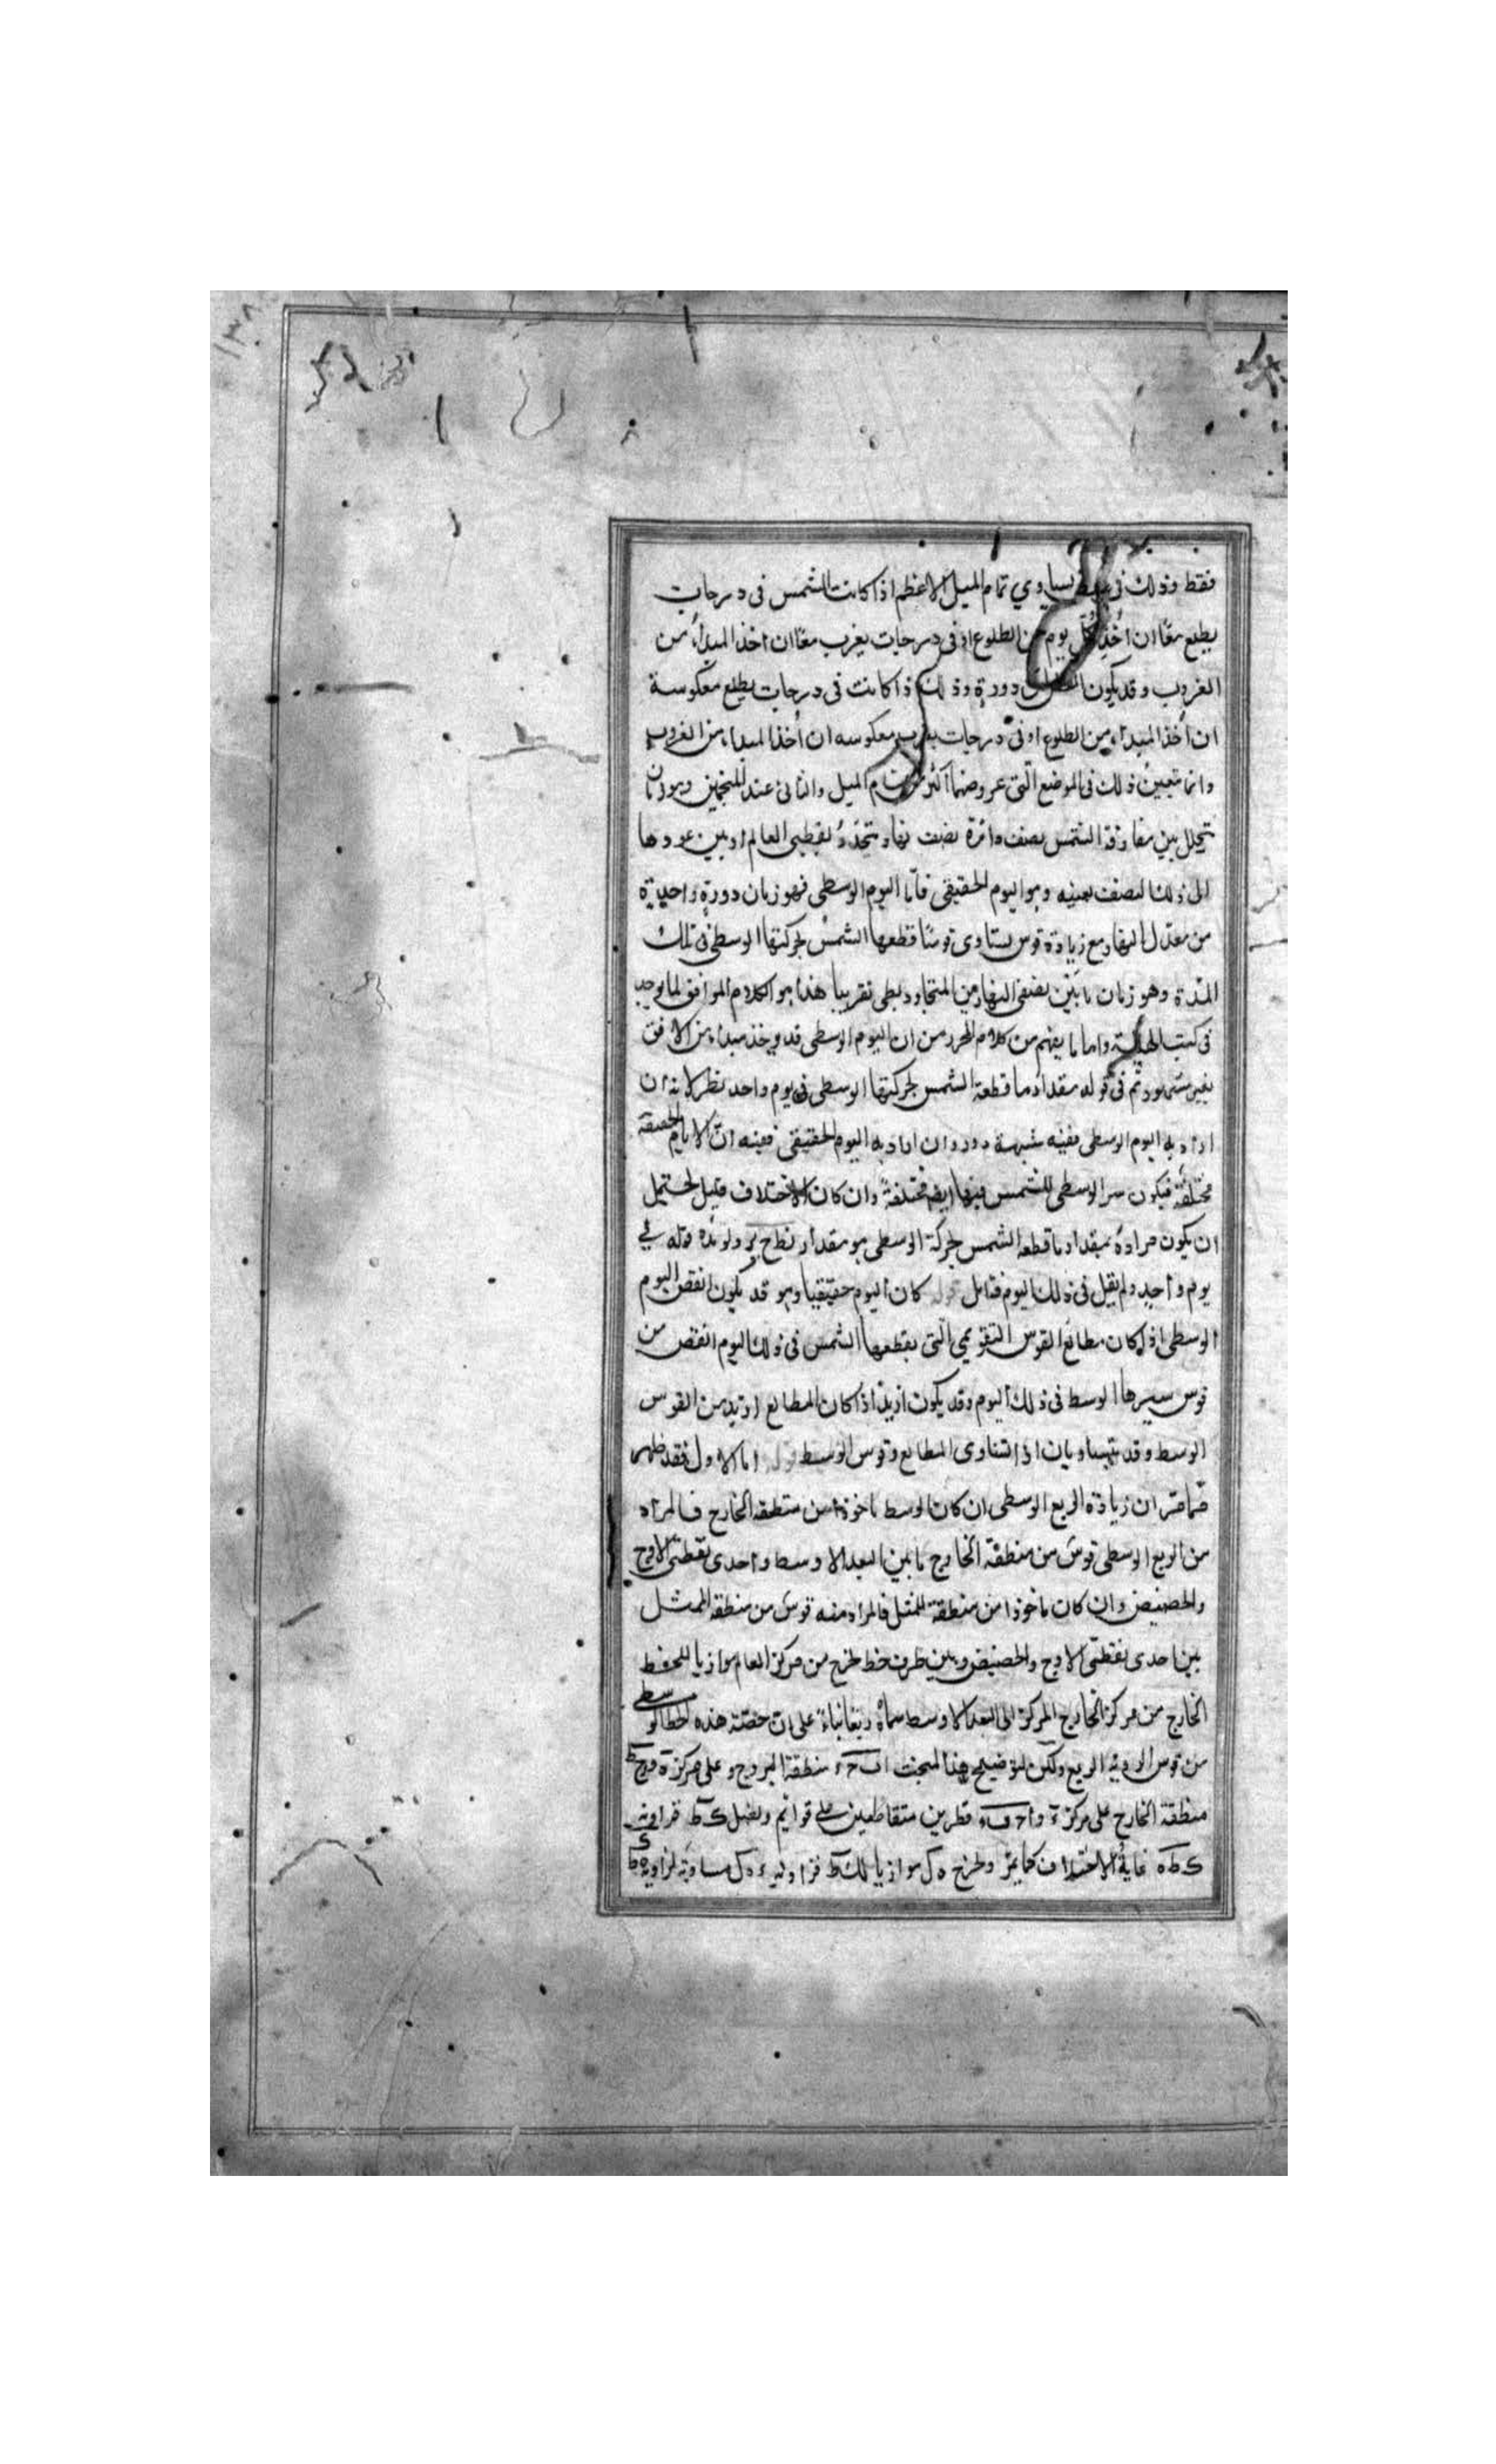 ١٣٨
فقط وذلك فى عرض يساوي تمام الميل الاعظم اذا كانت الشمس فى درجات
يطلع معًا ان اُخذ كل يوم من الطلوع او فى درجات يغرب معًا ان اخذ المبدأ من
الغروب وقد يكون دورة وذلك اذا كانت فى درجات يطلع معكوسة
ان اُخذ المبدأ من الطلوع او فى درجات يغرب معكوسه ان اُخذ المبدأ من الغروب
وانما يتعين ذلك فى الموضع الّتى عروضها اكثر من تمام الميل والثانى عند المنجمين وهو زمان
يتخلل بين مفارقة الشمس نصف دائرة نصف نهار يتحدّد بقطبى العالم وبين عودها
الى ذلك النصف بعينه وهو اليوم الحقيقى فاما اليوم الوسطى فهو زمان دورةٍ واحدة
من معدّل النهار مع زيادة قوس يساوى قوسًا قطعها الشمس بحركتها الوسطى فى تلك
المدّة وهو زمان ما بين نصفى النهار من المتجاور بطى تقريبا هذا هو الكلام الموافق لما يوجد
فى كتب الهيئة واما ما يفهم من كلام المحرر من ان اليوم الوسطى قد يؤخذ مبدأه من الافق
بغير مشهور ثم فى قوله مقدار ما قطعه الشمس بحركتها الوسطى فى يوم واحد نظر لانه ان
اراد به اليوم الوسطى ففيه شبهة دور وان اراد به اليوم الحقيقى ففيه انّ الايام الحقيقة
مختلفة فيكون سير الوسطى للشمس فيها ايضا مختلفةً وان كان الاختلاف قليل المحتمل
ان يكون مراده بمقدار ما قطعه الشمس بحركة الوسطى هو مقدار نطح ويؤيده قوله فى
يوم واحد ولم يقل فى ذلك اليوم فتامل قوله كان اليوم حقيقيا وهو قد يكون انقص اليوم
الوسطى اذا كان مطالع القوس التقويمى الّتى يقطعها الشمس فى ذلك اليوم انقص من
قوس سيرها الوسط فى ذلك اليوم وقد يكون ازيد اذا كان المطالع ازيد من القوس
الوسط وقد يتساويان اذا تساوى المطالع وقوس الوسط قوله اما الاول فقد ظهر
مما مّر ان زيادة الربع الوسطى ان كان الوسط ماخوذا من منطقه الخارج فالمراد
من الربع الوسطى قوس من منطقة الخارج ما بين البعد الاوسط واحدى نقطتى الاوج
والحضيض وان كان ماخوذا من منطقة الممثل فالمراد منه قوس من منطقه الممثل
بين احدى نقطتى الاوج والحضيض وبين طرف خط يخرج من مركز العالم موازيا للخط
الخارج من مركز الخارج المركز الى البعد الاوسط سماه ربعا بناءً على ان حصته هذه الخط الوسطى
من قوس الربع ولكن لتوضيح هذا المبحث منطقة البروج وعلى مركز
منطقة الخارج على مركز قطرين متقاطعين على قوائم ونصل فزاوية
غاية الاختلاف كما مّر ويخرج ه ل موازيا فزاوية مساوية لزاوية